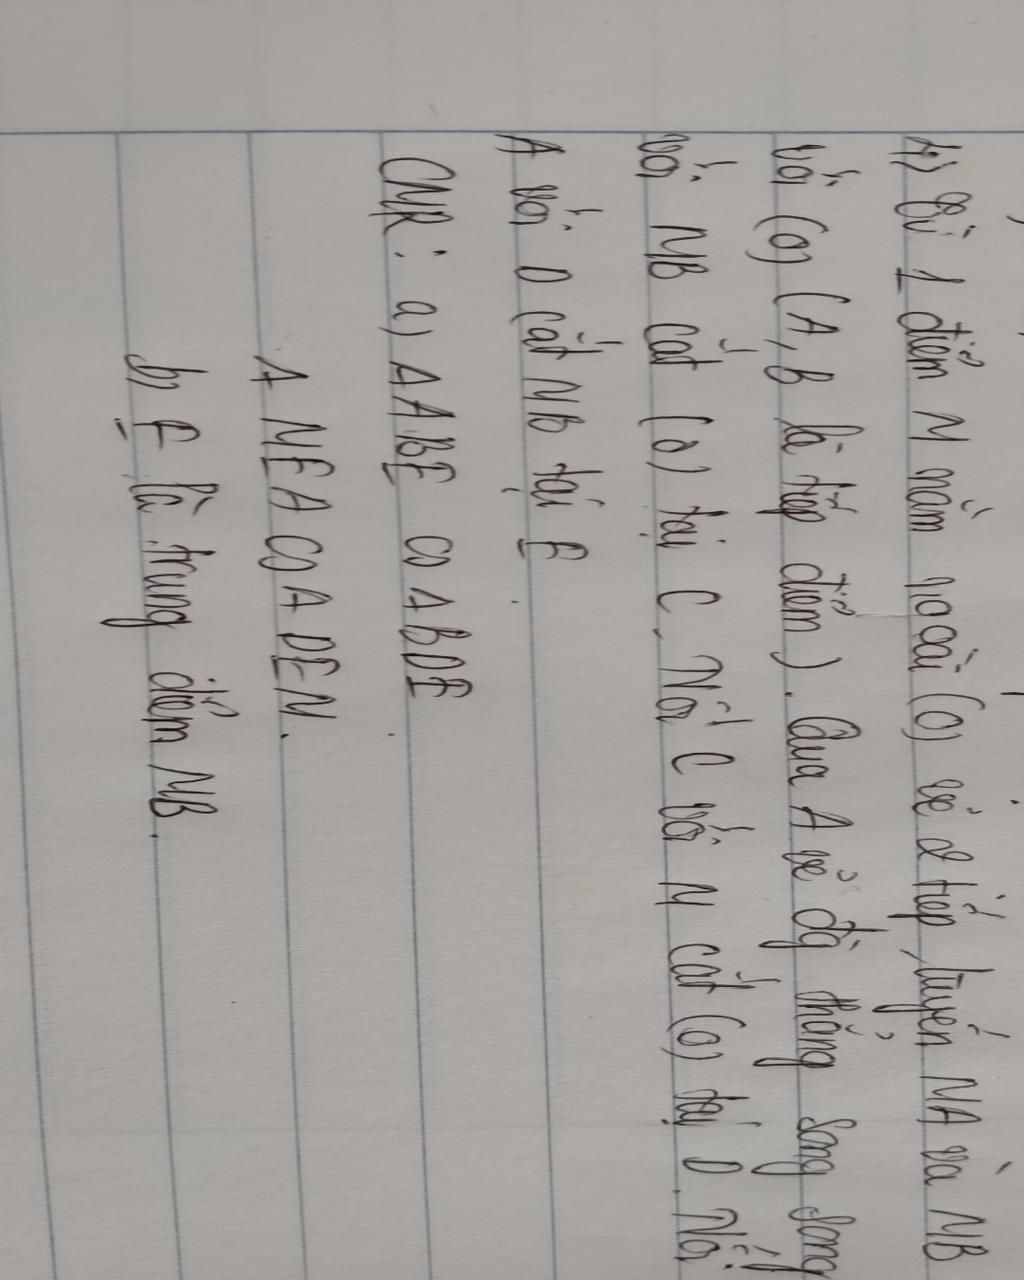 4) Từ 1 điểm M nằm ngoài (O) vẽ 2 tiếp tuyến MA và MB
với (O) (A, B là tiếp điểm). Qua A vẽ đg thẳng song song
với MB cắt (O) tại C. Nối C với M cắt (O) tại D. Nối
A với D cắt MB tại E
CMR: a) ΔABE ᔕ ΔBDE
Δ MEA ᔕ Δ DEM.
b) E là trung điểm MB.